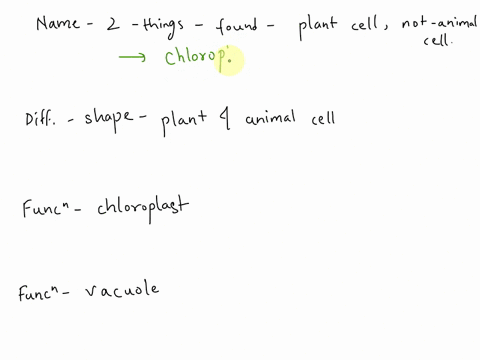 Name - 2 - things - found - plant cell, not-animal cell.
→ Chlorop
Diff. - shape - plant & animal cell
Funcⁿ - chloroplast
Funcⁿ - vacuole